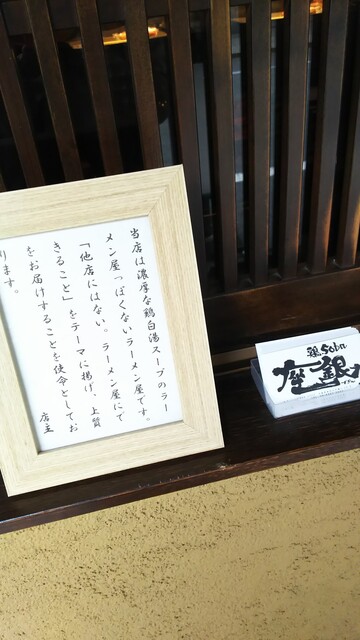 当店は濃厚な鶏白湯スープのラー
メン屋っぽくないラーメン屋です。
「他店にはない。ラーメン屋にで
きること」をテーマに掲げ、上質
をお届けすることを使命としてお
ります。
店主
鶏soba
座銀